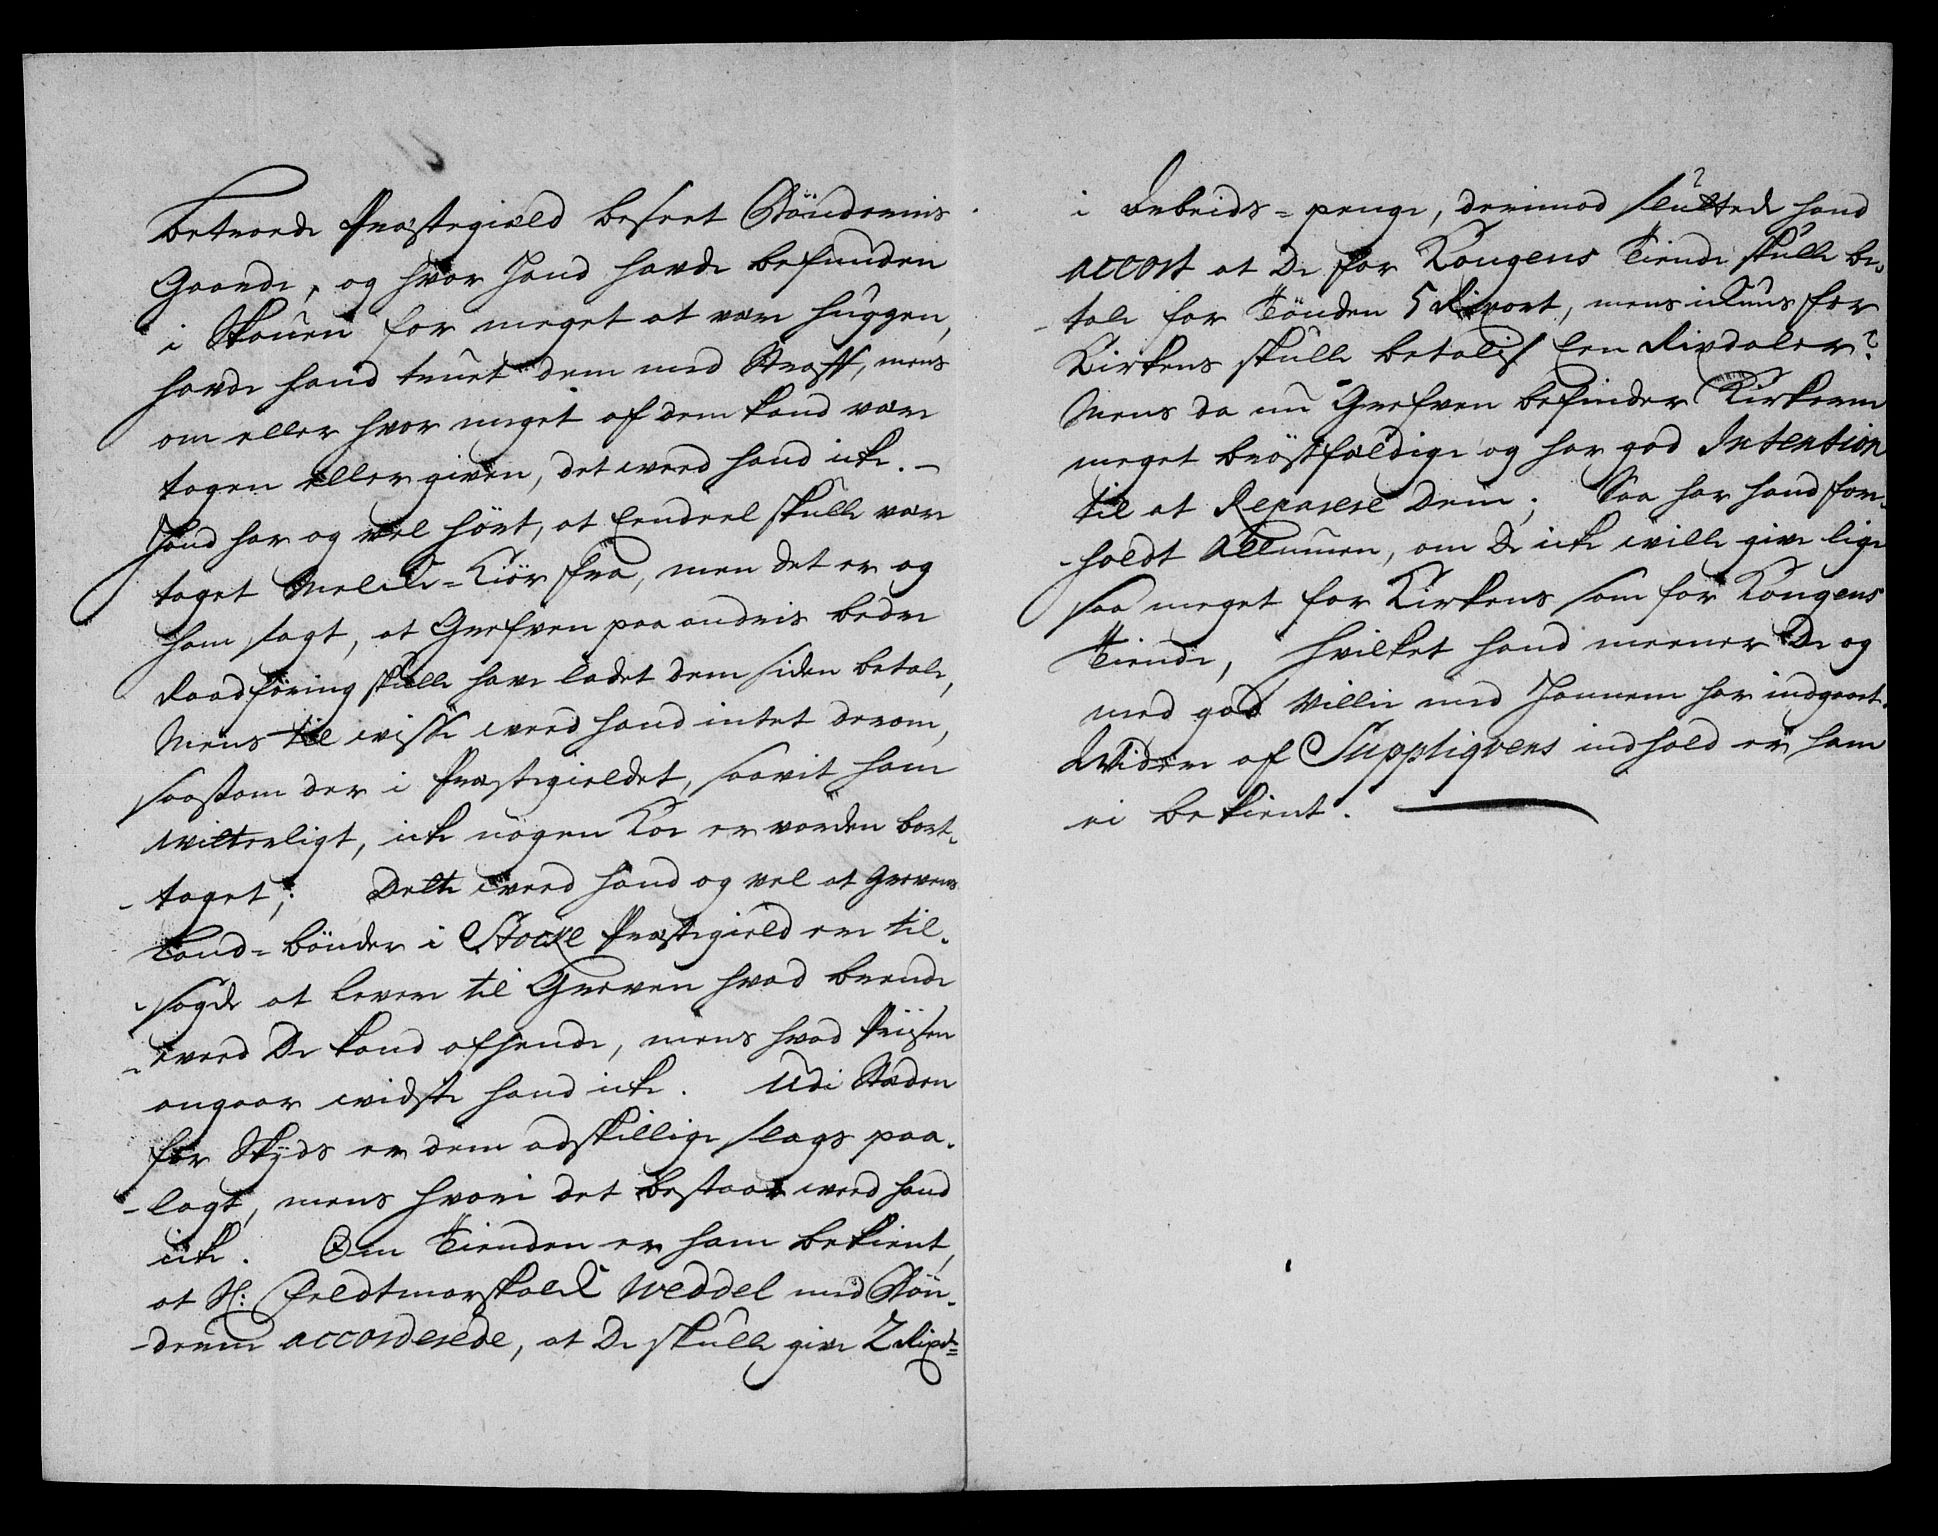 betroede Præstegiæld beseet Bøndernis
Gaarde, og hvor hand hafde befunden
i Skouen for meget at være huggen,
hafde hand truet dem med Straff, mens
om eller hvor meget af dem kand være
tagen eller given, det weed hand icke. –
Hand har og vel hört, at Eendeel skulle være
taget Melcke-Kiör fra, men det er og
ham sagt, at Grefven paa andris bedre
Raadföring skulle have ladet dem siden betale,
Mens til wisse weed hand intet derom,
saasom der i Præstegieldet, saavit ham
witterligt, icke nogen Koe er vorden bort-
-taget; Dette weed hand og vel at Grevens
Land-bönder i Stocke Præstegield ere til-
-sagde at levere til Greven hvad brende
-weed De kand afhende, mens hvad Priisen
angaar widste hand icke. Udi Steden
for Skyds er dem adskillige slags paa-
-lagt, mens hvori det bestaar weed hand
icke. Om Tienden er ham bekient,
at H: Feldtmarskalck Weddel med Bön-
-derne accorderede, at De skulle give 2 Rixd=
i Arbeids-penge, derimod sluttede hand
accort at De for Kongens Tiende skulle be-
-tale for Tönden 5 Rixort, mens ickuns for
Kirkens skulle betalis Een Rixdaler?
Mens da nu Grefven befinder Kirkerne
meget bröstfældige og har god Intention
til at Reparere Dem; Saa har hand for-
-holdt Allmuen, om De icke wille give lige
saa meget for Kirkens som for Kongens
Tiende, hvilket hand meener De og
med god Villie med Hannem har indgaaet.
Widere af Suppliqvens indhold er ham
ei bekient.